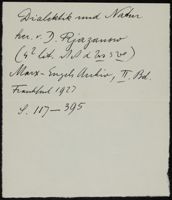 Dialektik und Natur
her. v. D. Rjazanow
Marx-Engels Archiv, II. Bd.
Frankfurt 1927
S. 117—395